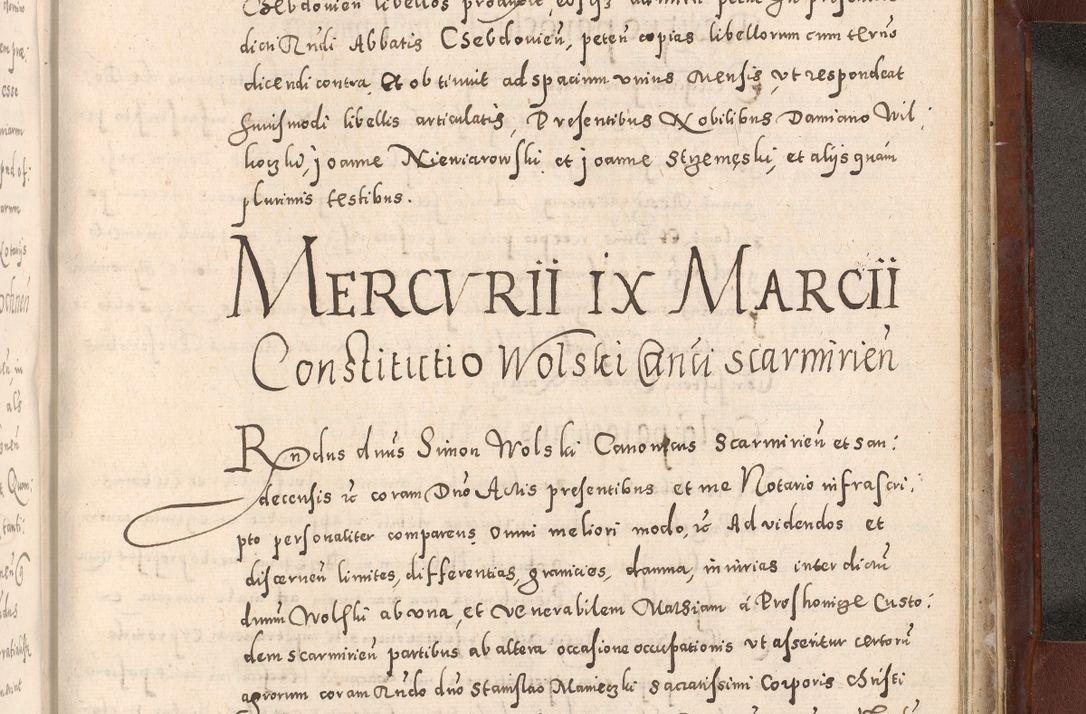 dicti Rndi Abbatis Csebdovien̄, peten̄ copias libellorum cum termō
dicendi contra, Et obtinuit ad spacium unius Mensis, ut respondeat
huiusmodi libellis articulatis, Presentibus Nobilibus Damiano Wil:
koczki, Joanne Niewiarowski et Joanne Stzemęski, et alijs quam
plurimis testibus.
MERCVRII IX MARCII
Constitutio Wolski Canci scarmirien̄
Rndus dnūs Simon Wolski Canonicus Scarmirien̄ et san:
decensis rc̄ coram Dnō Actis presentibus et me Notario infrascri:
pto personaliter comparens, omni meliori modo, rc̄ Ad videndos et
discernen̄ limites, differentias, granicies, damna, iniurias inter dictū
dnum Wolski ab una, et Venerabilem Matziam à Proshowicze Custo:
dem scarmirien̄ partibus ab altera occasione occupationis ut asseritur certorū
agrorum coram Rndo dnō Stanislao Manieczki sacratissimi Corporis christi